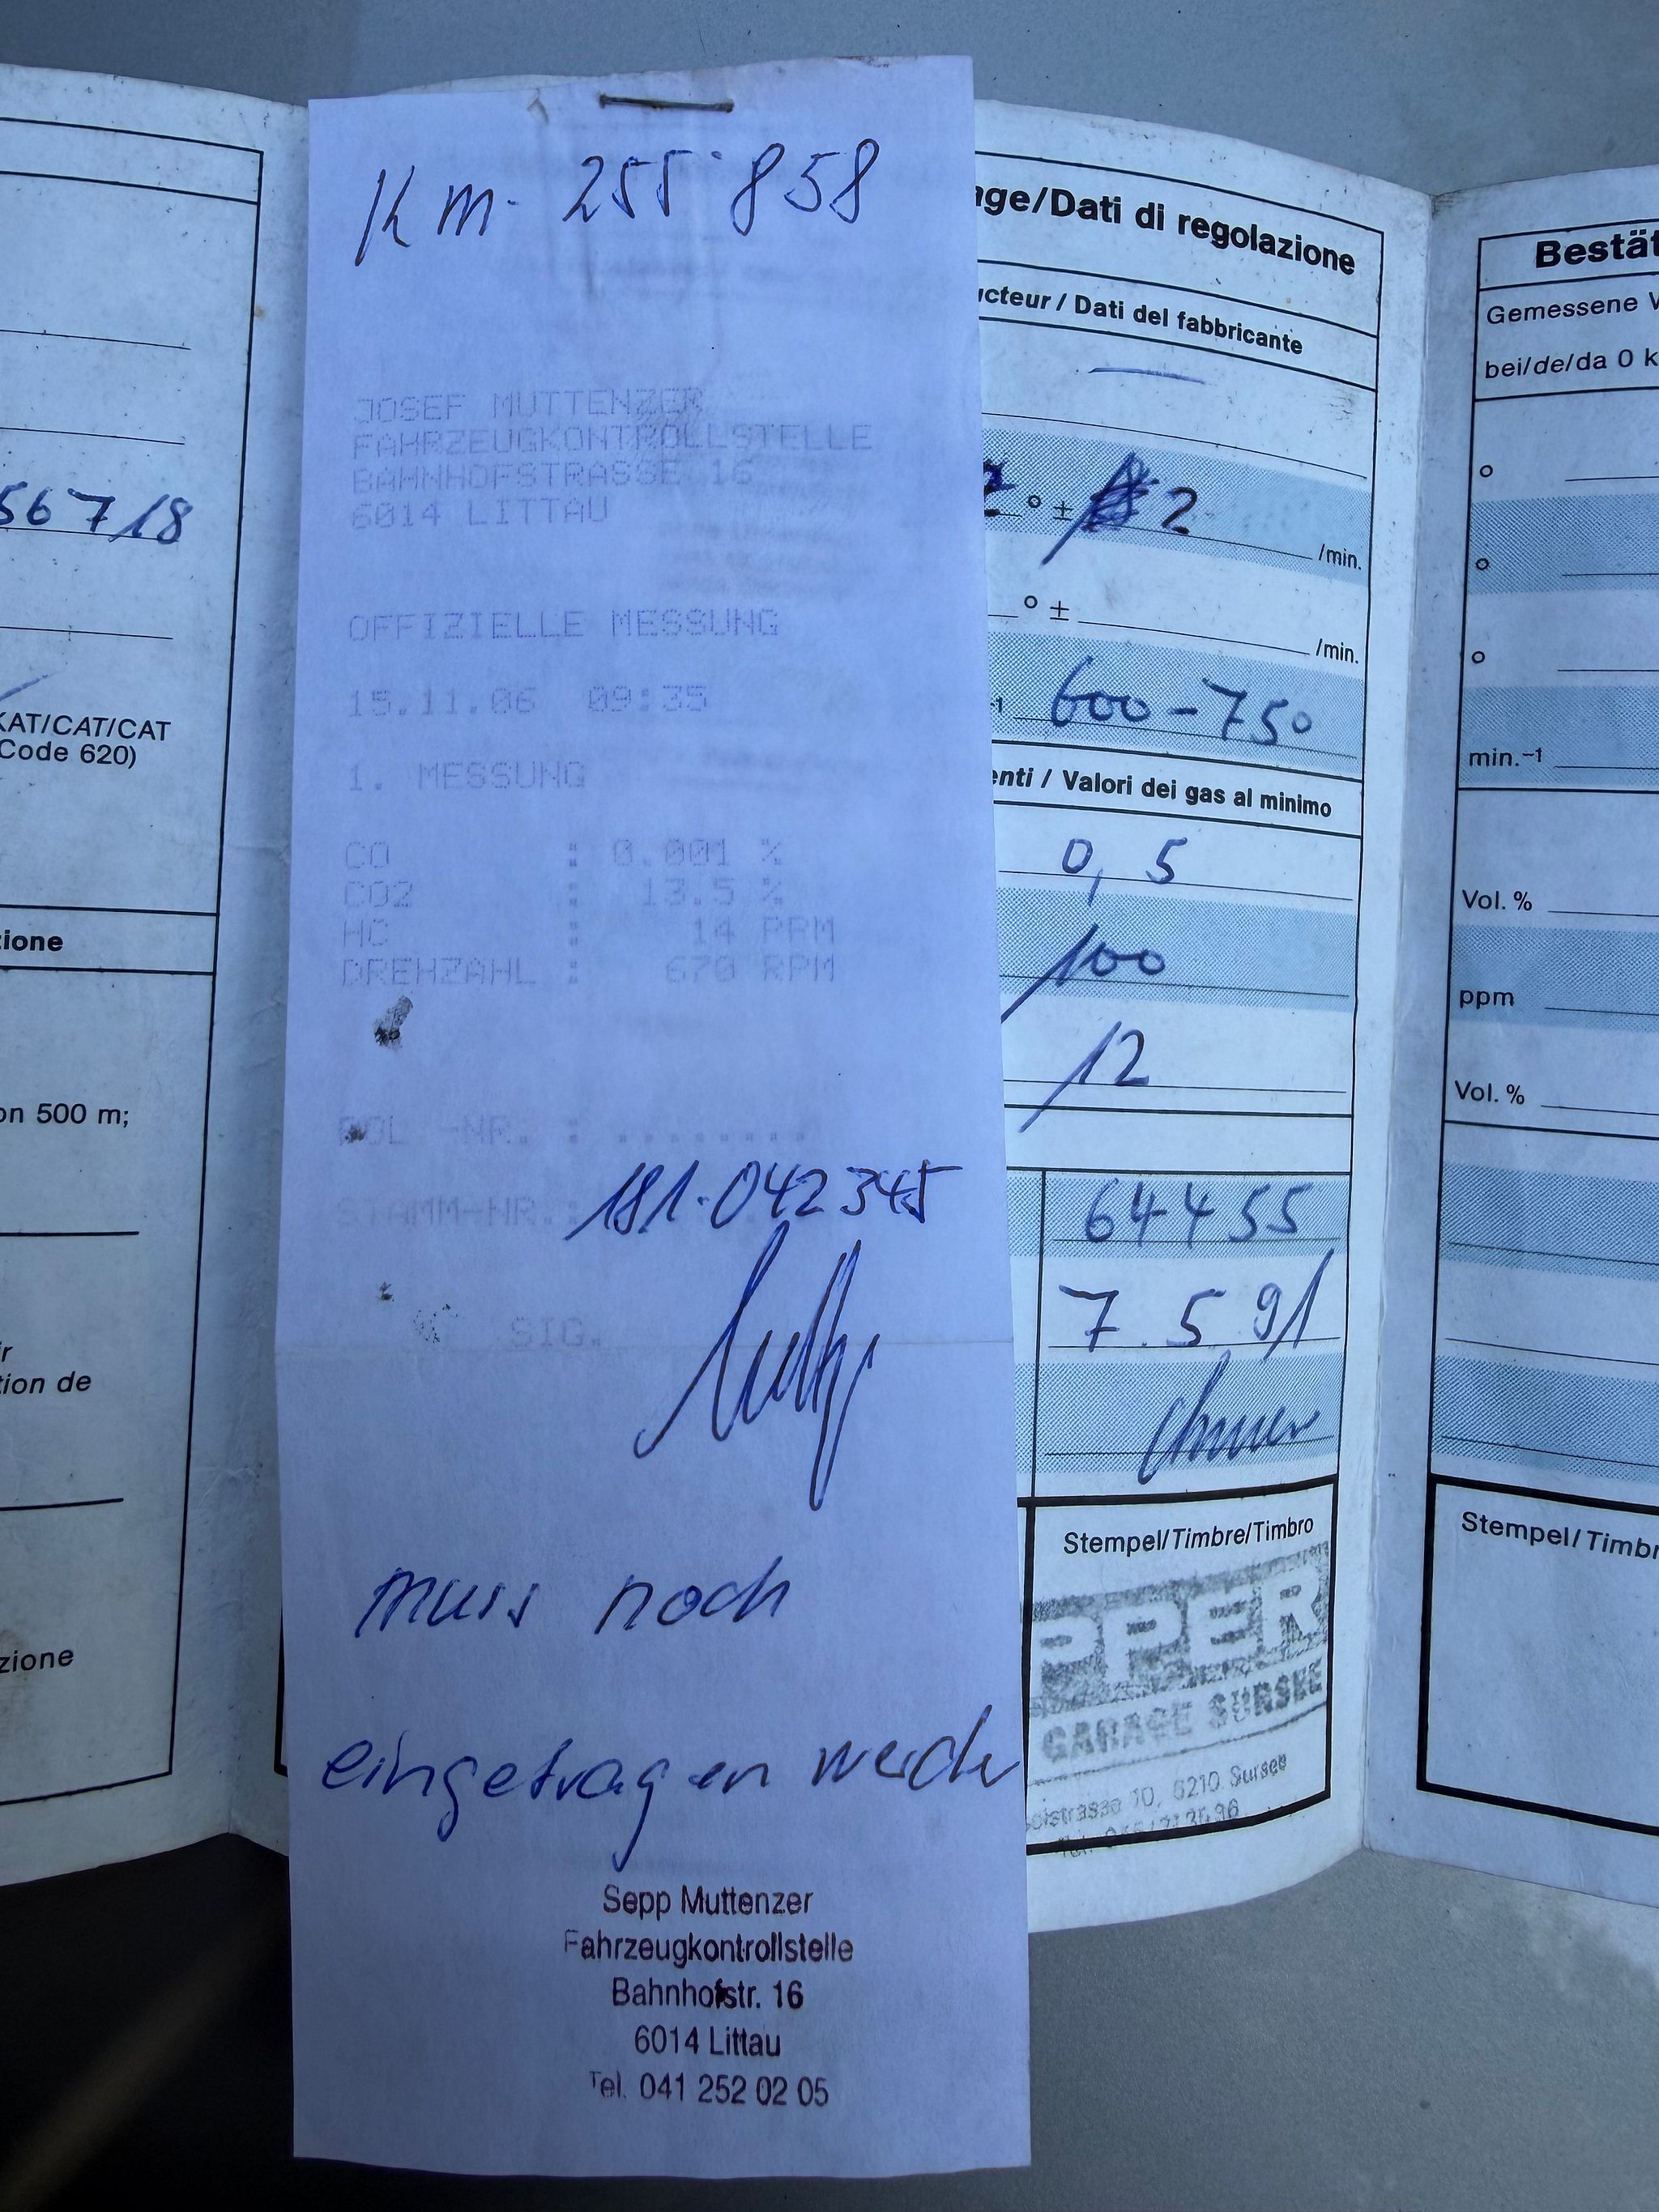 567/18
KAT/CAT/CAT
Code 620)
zione
on 500 m;
tion de
zione
Km. 255'858
JOSEF MUTTENZER
FAHRZEUGKONTROLLSTELLE
BAHNHOFSTRASSE 16
6014 LITTAU
OFFIZIELLE MESSUNG
15.11.06 09:35
1. MESSUNG
CO : 0.001 %
CO2 : 13.5 %
HC : 14 PPM
DREHZAHL : 670 RPM
POL -NR. : ........
STAMM-NR.: 181.042345
SIG.
muss noch
eingetragen werden
Sepp Muttenzer
Fahrzeugkontrollstelle
Bahnhofstr. 16
6014 Littau
Tel. 041 252 02 05
age/Dati di regolazione
ucteur / Dati del fabbricante
° ± 2
/min.
° ±
/min.
600-750
enti / Valori dei gas al minimo
0,5
100
12
64455
7.5 91
Stempel/Timbre/Timbro
PPER
GARAGE SURSEE
10, 6210 Sursee
Bestät
Gemessene W
bei/de/da 0 k
°
°
°
min.⁻¹
Vol. %
ppm
Vol. %
Stempel/Timbr